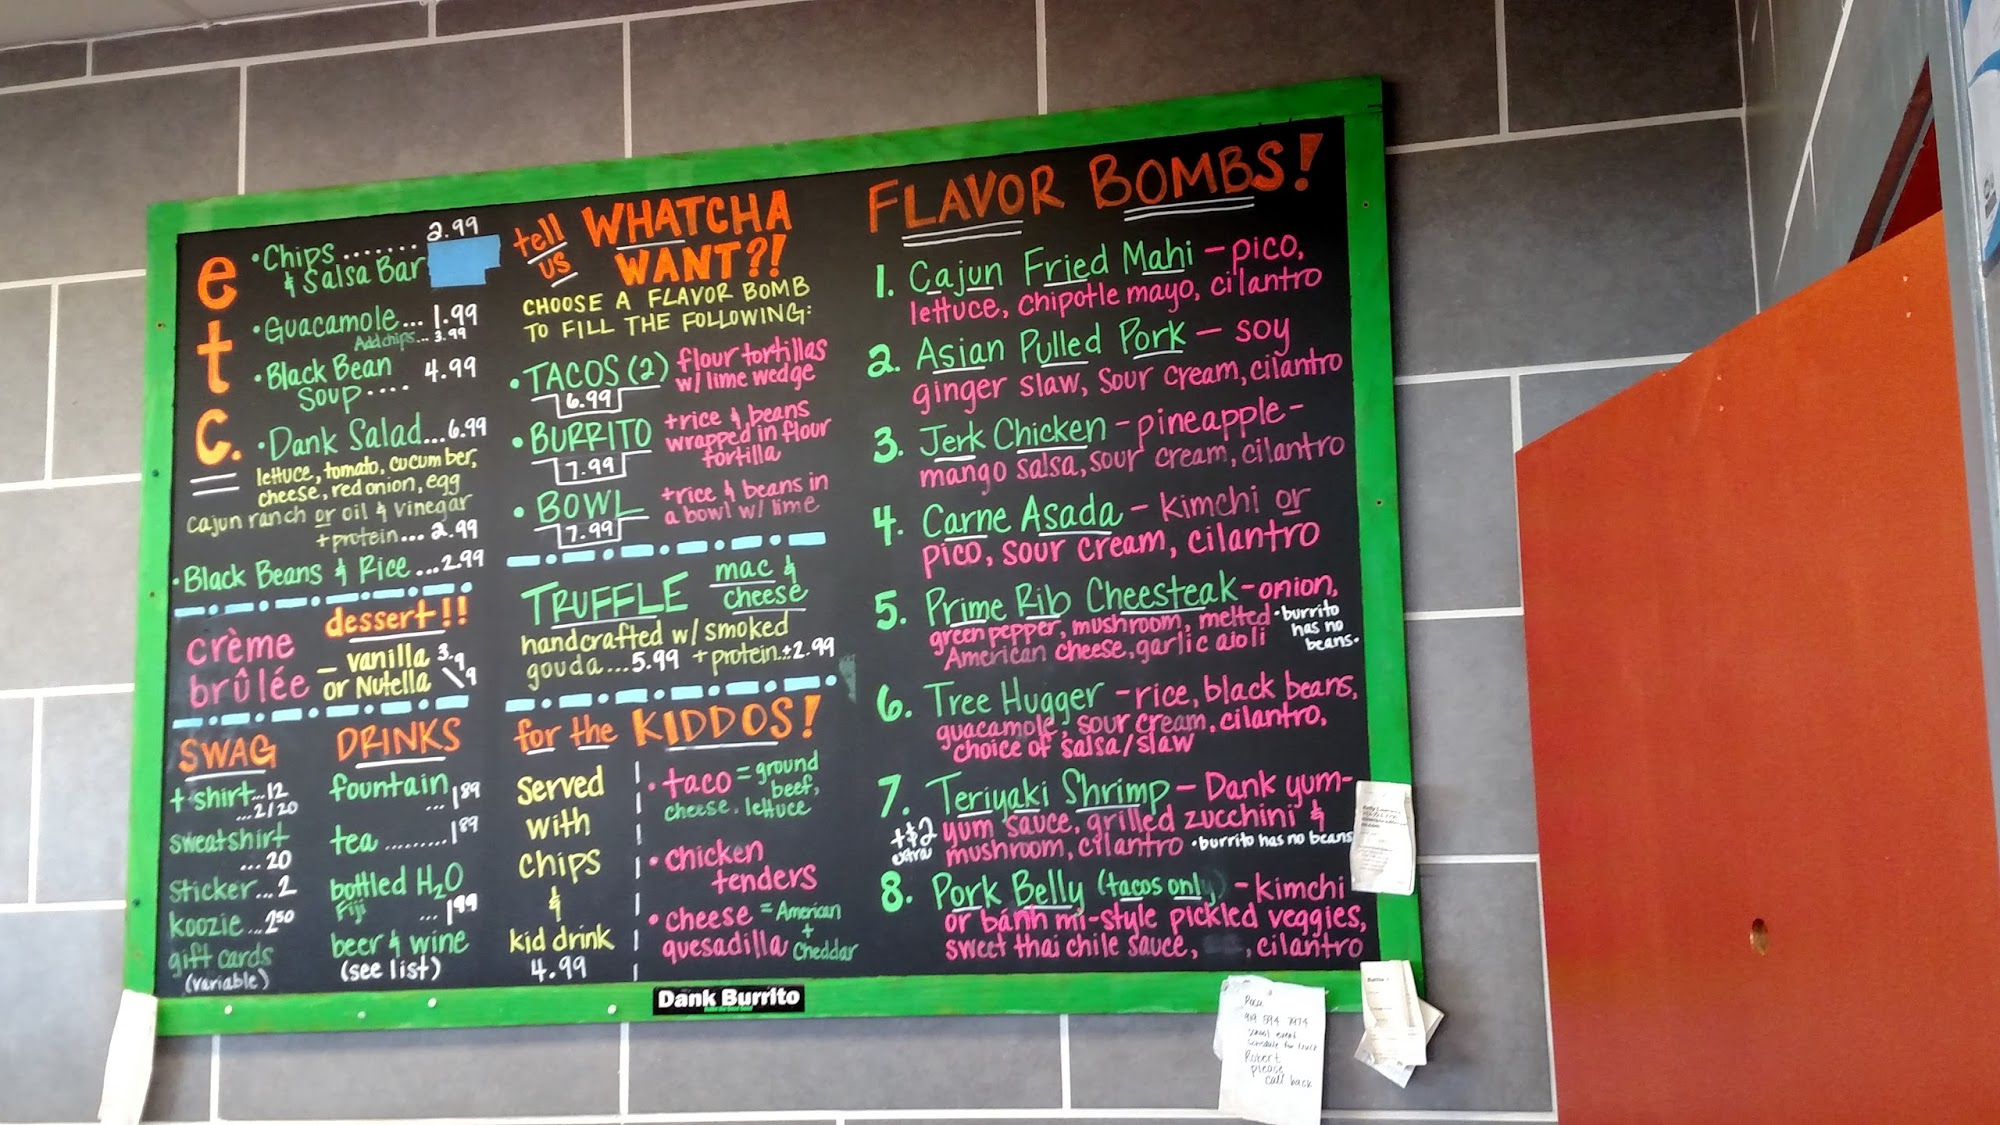 etc.
• Chips ....... 2.99
& Salsa Bar
• Guacamole... 1.99
Add chips... 3.99
• Black Bean
Soup.... 4.99
• Dank Salad...6.99
lettuce, tomato, cucumber,
cheese, red onion, egg
cajun ranch or oil & vinegar
+ protein.... 2.99
• Black Beans & Rice ...2.99
dessert!!
crème
brûlée
– vanilla 3.9
or Nutella \9
SWAG
t shirt...12
...2/20
sweatshirt
... 20
sticker...2
koozie...2.50
gift cards
(variable)
DRINKS
fountain
... 1.89
tea .........1.89
bottled H2O
Fiji ... 1.99
beer & wine
(see list)
tell us
WHATCHA
WANT?!
CHOOSE A FLAVOR BOMB
TO FILL THE FOLLOWING:
• TACOS (2) flour tortillas
w/ lime wedge
6.99
• BURRITO +rice & beans
wrapped in flour
tortilla
7.99
• BOWL +rice & beans in
a bowl w/ lime
7.99
TRUFFLE mac &
cheese
handcrafted w/ smoked
gouda....5.99 + protein..+2.99
for the KIDDOS!
served
with
chips
&
kid drink
4.99
• taco = ground
beef,
cheese, lettuce
• chicken
tenders
• cheese = American
+
quesadilla Cheddar
FLAVOR BOMBS!
1. Cajun Fried Mahi – pico,
lettuce, chipotle mayo, cilantro
2. Asian Pulled Pork – soy
ginger slaw, sour cream, cilantro
3. Jerk Chicken – pineapple-
mango salsa, sour cream, cilantro
4. Carne Asada – kimchi or
pico, sour cream, cilantro
5. Prime Rib Cheesteak – onion,
green pepper, mushroom, melted
American cheese, garlic aioli
• burrito
has no
beans •
6. Tree Hugger – rice, black beans,
guacamole, sour cream, cilantro,
choice of salsa/slaw
7. Teriyaki Shrimp – Dank yum-
yum sauce, grilled zucchini &
mushroom, cilantro • burrito has no beans
+$2
extra
8. Pork Belly (tacos only) – kimchi
or bánh mì-style pickled veggies,
sweet thai chile sauce, , cilantro
Dank Burrito
919 594 7974
school event
Robert
please
call back